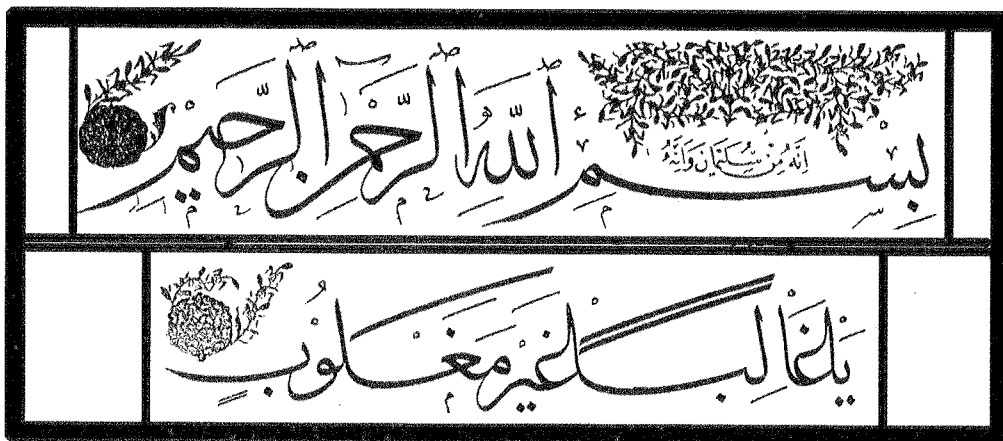 انه من سليمان وانه
بسم الله الرحمن الرحيم
يا غالبا غير مغلوب